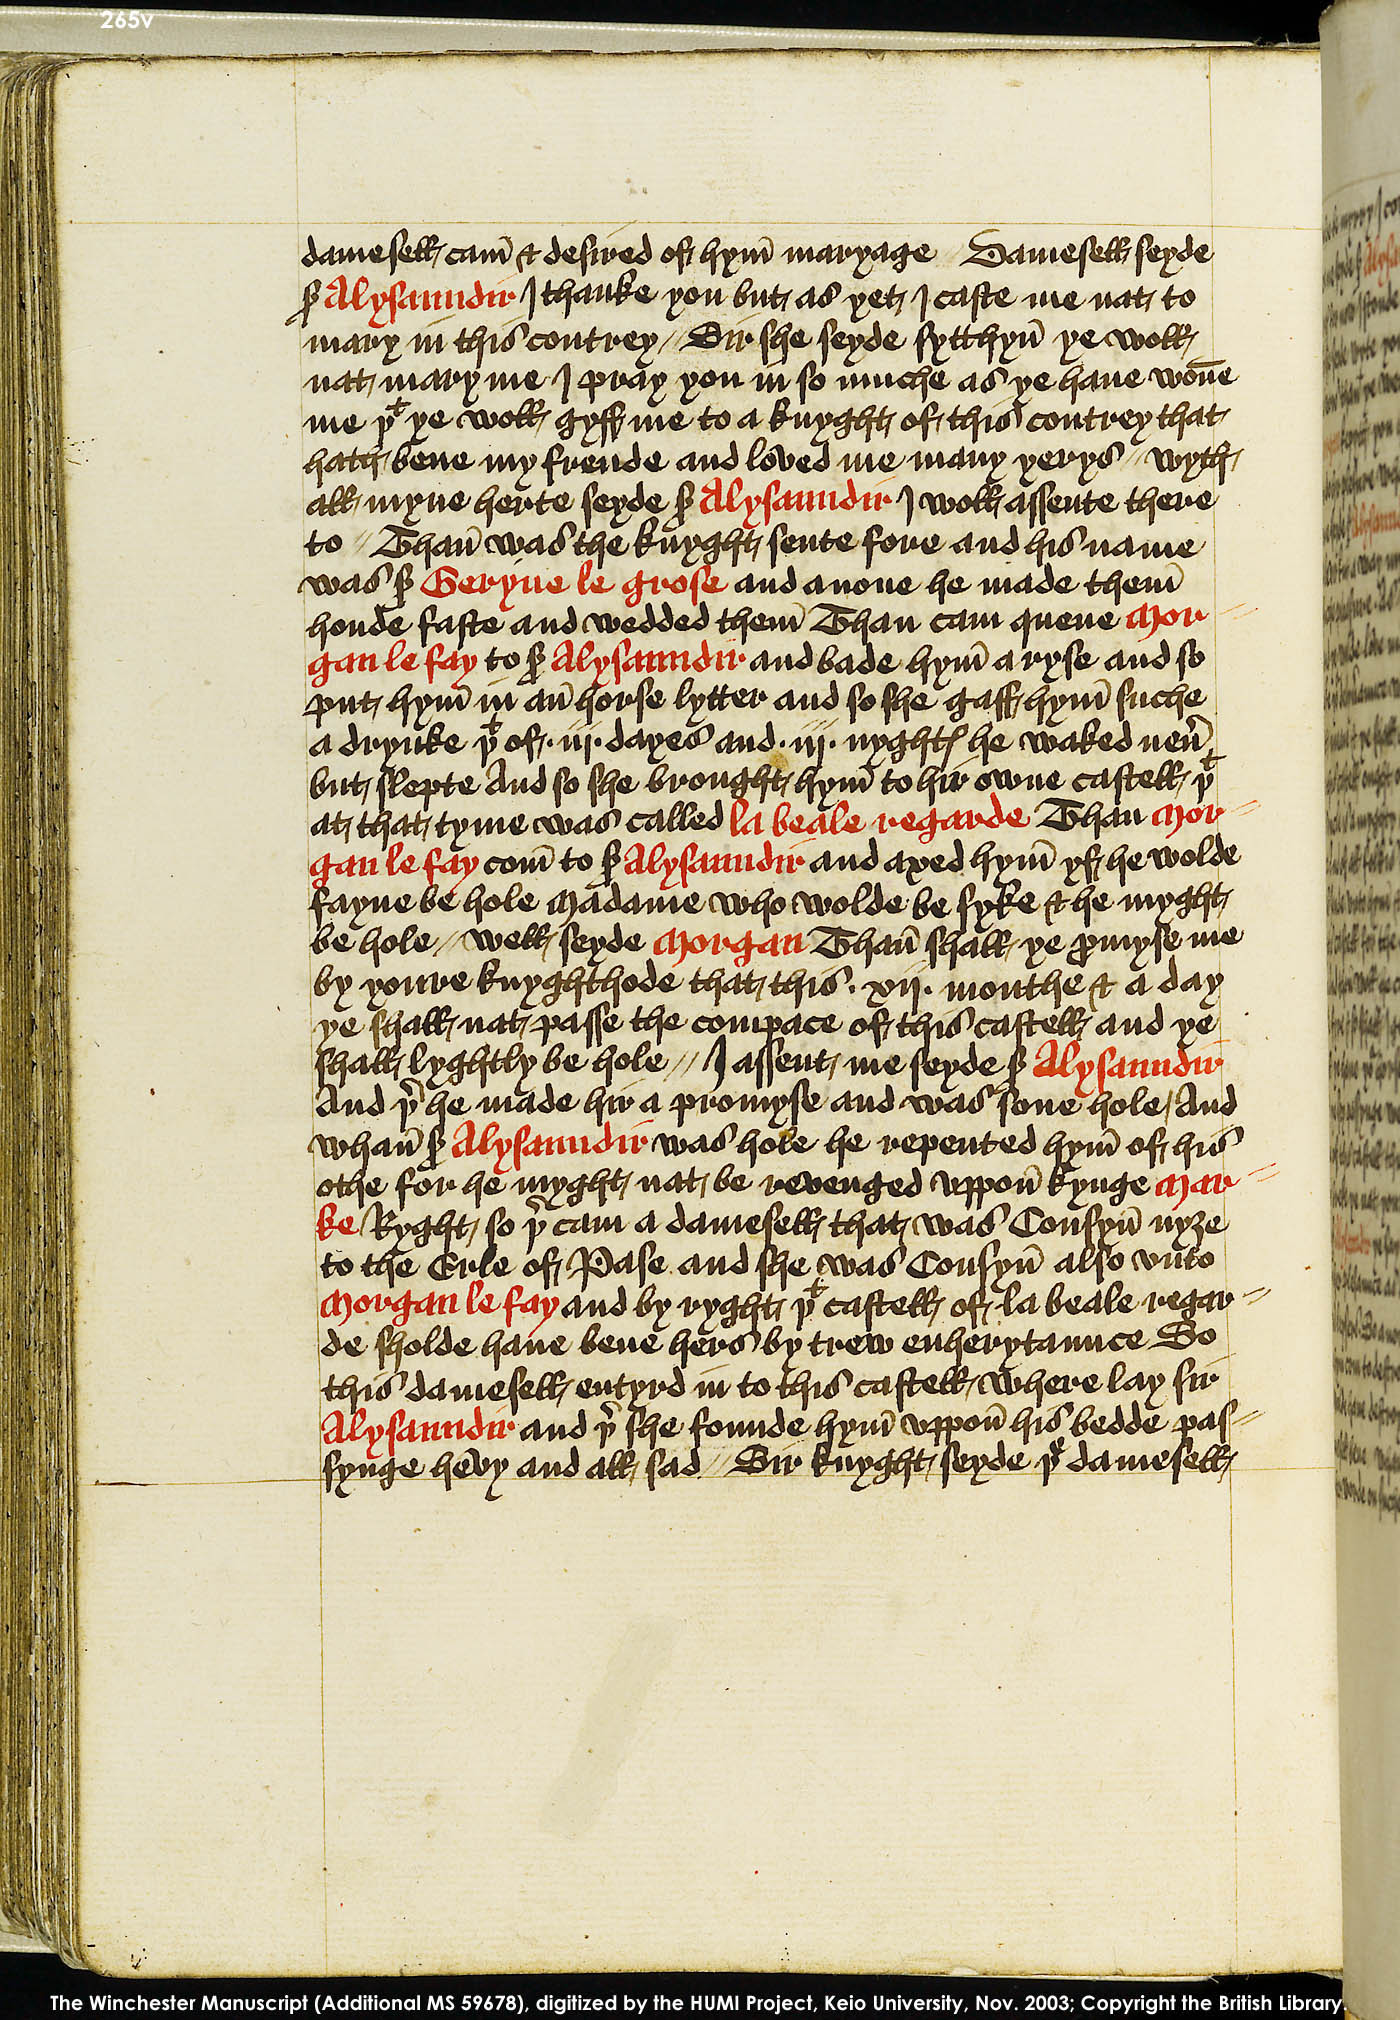 265v
damesell cam̄ & desired of hym̄ maryage // Damesell seyde
sͬ Alysaundir I thanke you but as yet I caste me nat to
mary in this contrey // Sir she seyde sytthyn̄ ye woll
nat mary me I pray you in so muche as ye haue wōne
me þͭ ye woll gyff me to a knyght of this contrey that
hath bene my frende and loved me many yerys // wyth
all myne herte seyde sͬ Alysaundir I woll assente there
to // Than̄ was the knyght sente fore and his name
was sͬ Geryne le grose and anone he made them̄
honde faste and wedded them̄ Than cam quene Mor
gan le fay to sͬ Alysaundir and bade hym̄ aryse and so
put hym̄ in an̄ horse lytter and so she gaff hym̄ suche
a drynke þͭ of · iij · dayes and · iij · nyghtꝭ he waked neu̾
but slepte And so she brought hym̄ to hir owne castell þͭ
at that tyme was called la beale regarde Than Mor
gan le fay com̄ to sͬ Alysaundir and axed hym̄ yf he wolde
fayne be hole Madame who wolde be syke & he myght
be hole // well seyde Morgan Than̄ shall ye ꝓmyse me
by youre knyghthode that this · xij · monthe & a day
ye shall nat passe the compace of this castell and ye
shall lyghtly be hole // I assent me seyde sͬ Alysaundir
And þ̾ he made hir a promyse and was sone hole / And
whan̄ sͬ Alysaundir was hole he repented hym̄ of his
othe for he myght nat be revenged vppon̄ kynge Mar
ke / Ryght so þ̾ cam a damesell that was Cousyn̄ nyze
to the Erle of Pase and she was Cousyn̄ also vnto
Morgan le fay and by ryght þͭ castell of la beale regar
de sholde haue bene hers by trew enherytaunce So
this damesell entyrd in to this castell where lay sir
Alysaundir and þ̾ she founde hym̄ vppon̄ his bedde pas
synge hēvy and all sad // Sir knyght seyde þͤ damesell
The Winchester Manuscript (Additional MS 59678), digitized by the HUMI Project, Keio University, Nov. 2003; Copyright the British Library.